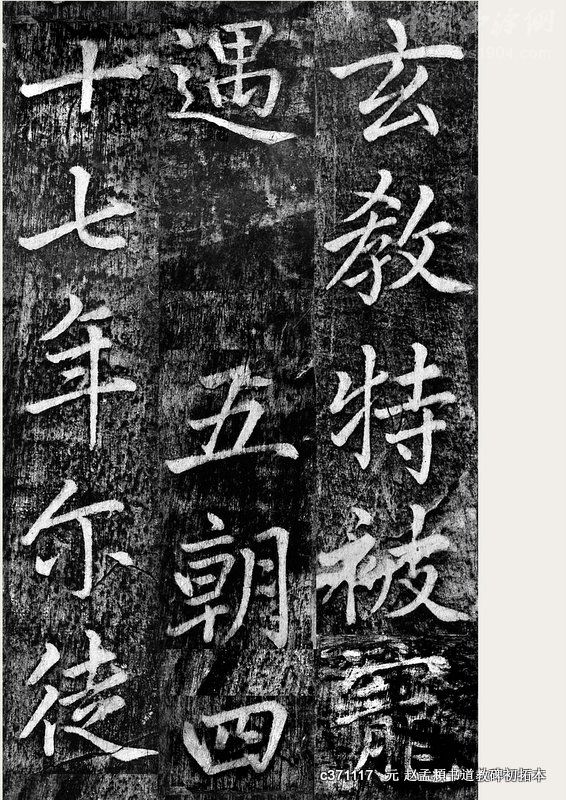 玄教特被寵
遇 五朝四
十七年尔徒
c371117、元 赵孟頫书道教碑初拓本